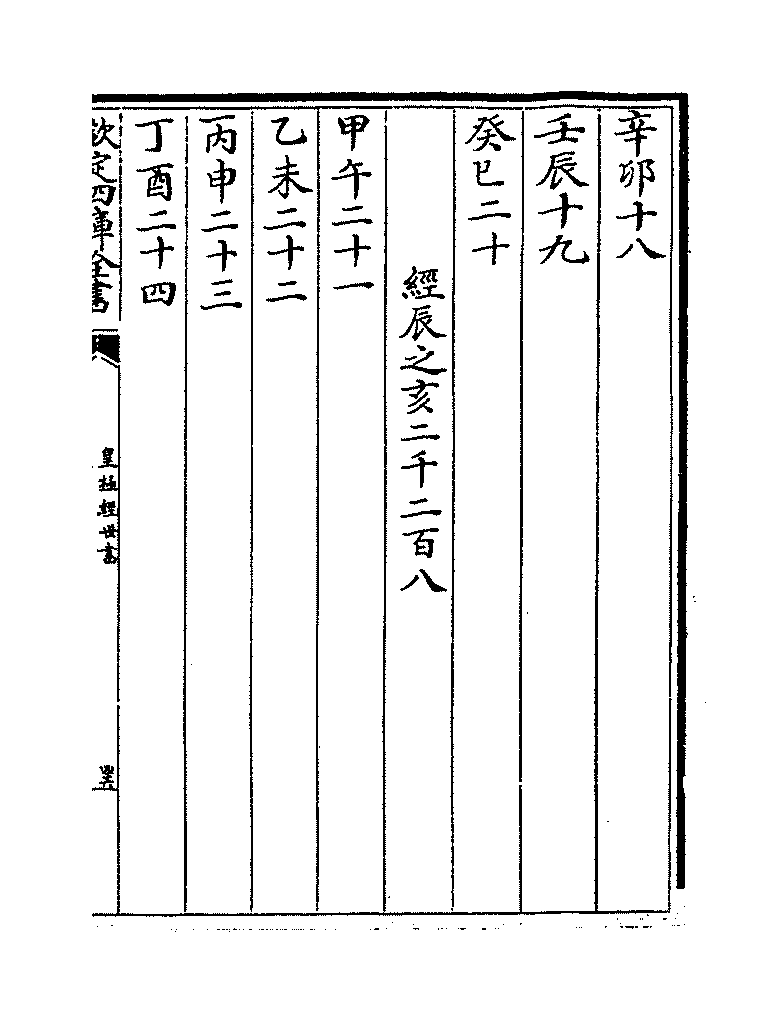 辛卯十八
壬辰十九
癸巳二十
經辰之亥二千二百八
甲午二十一
乙未二十二
丙申二十三
丁酉二十四
欽定四庫全書
皇極經世書